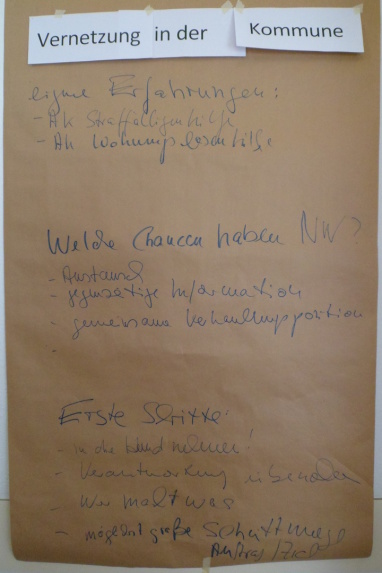 Vernetzung in der Kommune
eigene Erfahrungen:
- AK Straffälligenhilfe
- AK Wohnungslosenhilfe
Welche Chancen haben NW?
- Austausch
- gegenseitige Information
- gemeinsame Verhandlungsposition
Erste Schritte:
- in die Hand nehmen!
- Verantwortung übernehmen
- Wer macht was
- möglichst große